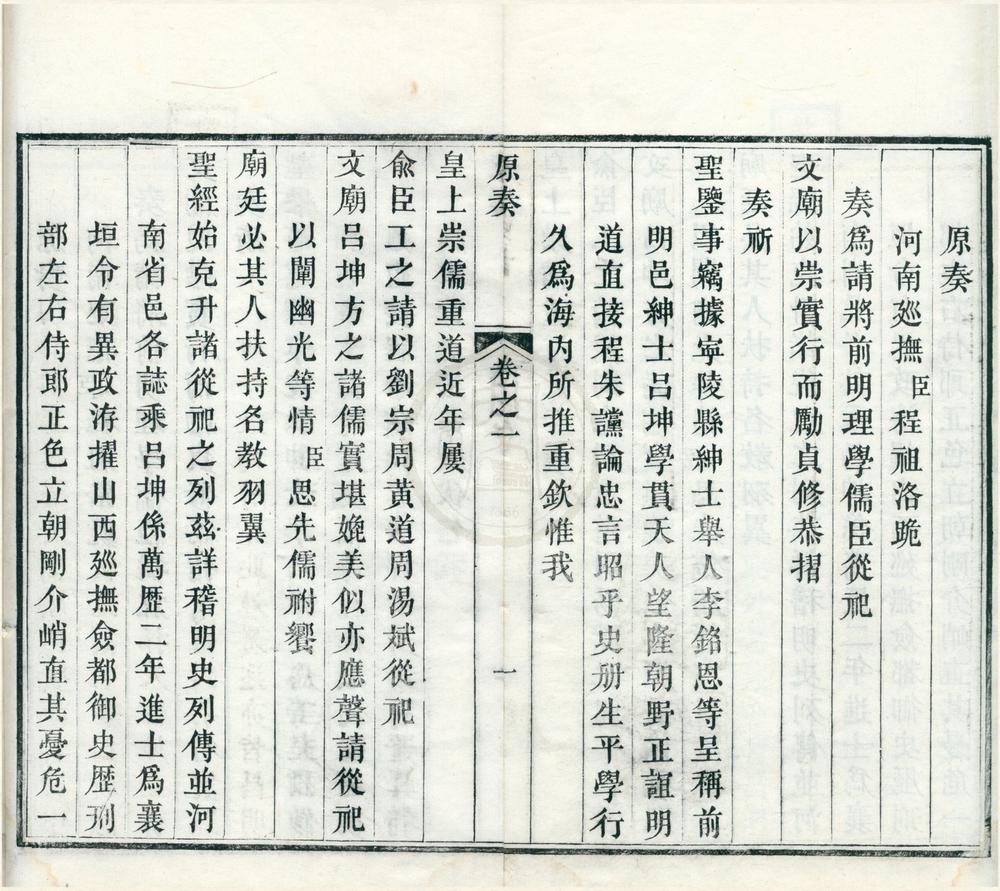 原奏
河南廵撫臣程祖洛跪
奏爲請將前明理學儒臣從祀
文廟以崇實行而勵貞修恭摺
奏祈
聖鑒事竊據寧陵縣紳士舉人李銘恩等呈稱前
明邑紳士吕坤學貫天人望隆朝野正誼明
道直接程朱讜論忠言昭乎史册生平學行
久爲海内所推重欽惟我
原奏 卷之一 一
皇上崇儒重道近年屢
俞臣工之請以劉宗周黄道周湯斌從祀
文廟吕坤方之諸儒實堪媲美似亦應聲請從祀
以闡幽光等情臣思先儒祔饗
廟廷必其人扶持名教羽翼
聖經始克升諸從祀之列兹詳稽明史列傳並河
南省邑各誌乘吕坤係萬歷二年進士爲襄
垣令有異政洊擢山西廵撫僉都御史歷刑
部左右侍郎正色立朝剛介峭直其憂危一